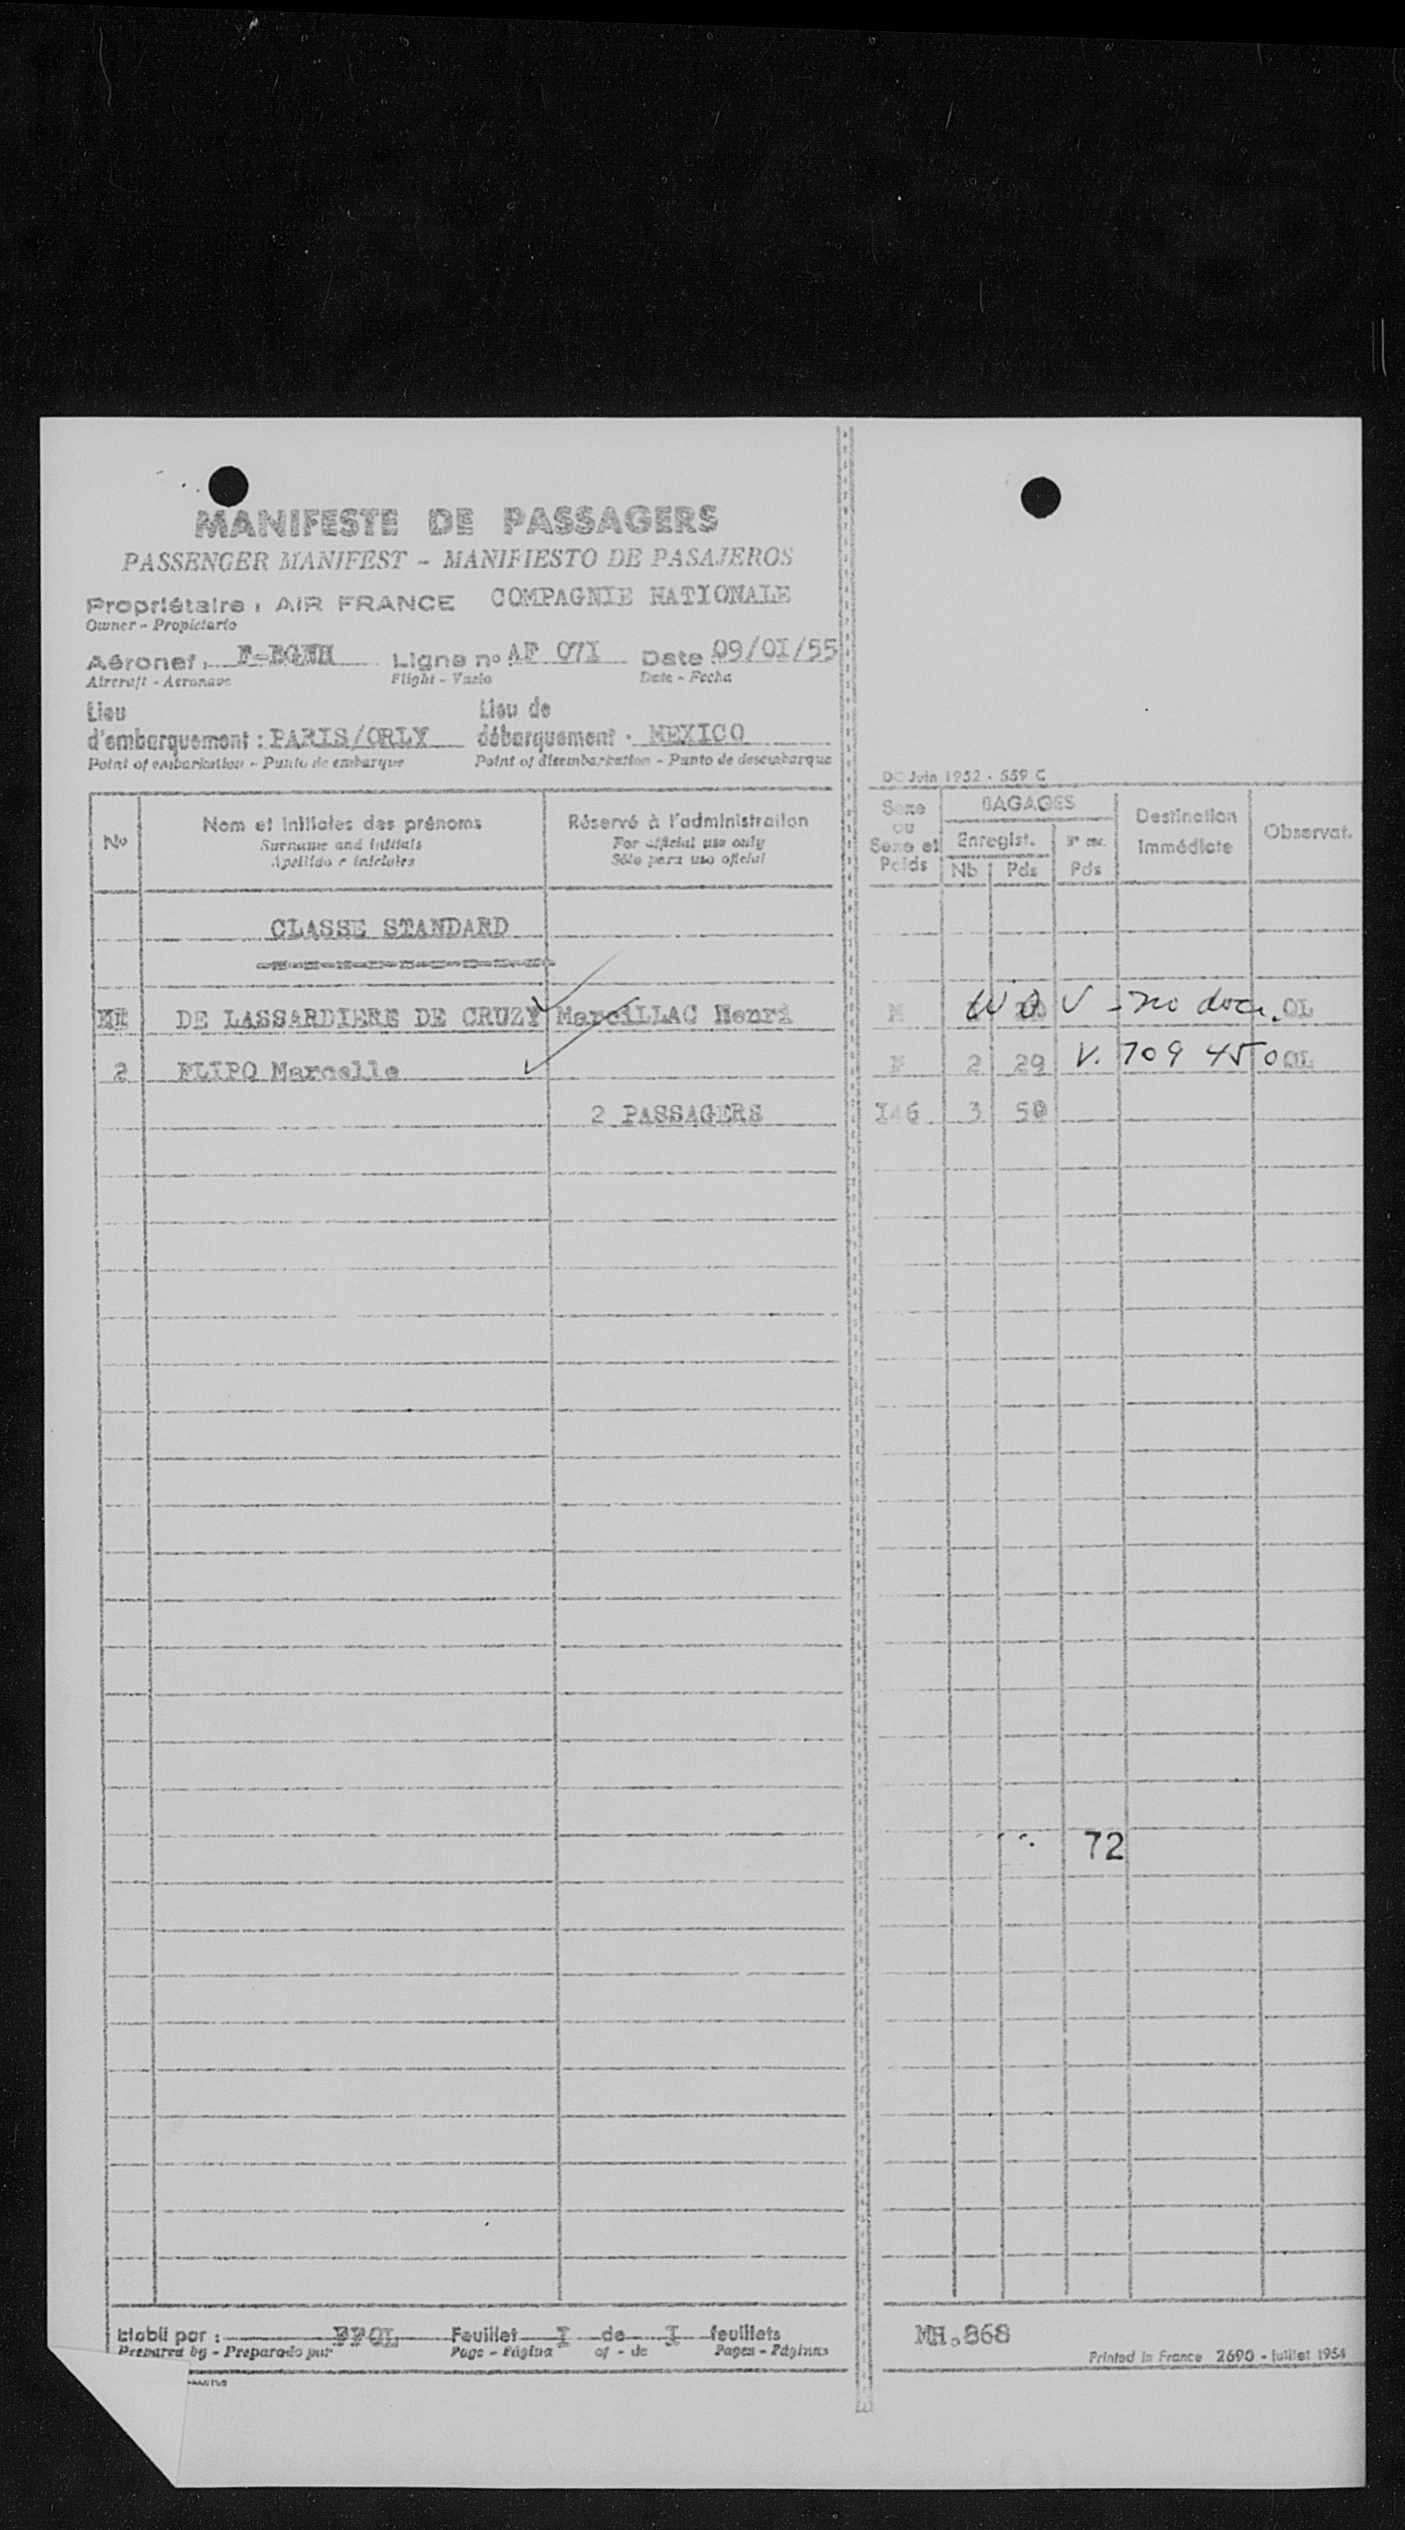 MANIFESTE DE PASSAGERS
PASSENGER MANIFEST - MANIFIESTO DE PASAJEROS
Propriétaire : AIR FRANCE COMPAGNIE NATIONALE
Owner - Propietario
Aéronef : F-BGNH Ligne no AF 07I Date 09/0I/55
Aircraft - Aeronave Flight - Vuelo Date - Fecha
Lieu Lieu de
d'embarquement : PARIS/ORLY débarquement : MEXICO
Point of embarkation - Punto de embarque Point of disembarkation - Punto de desembarque
DC Juin 1952 - 559 C
No Nom et initiales des prénoms Réservé à l'administration Sexe ou Sexe et Poids BAGAGES Destination immédiate Observat.
Surname and initials For official use only Enregist.
Apellido e iniciales Sólo para uso oficial Nb Pds Pds
CLASSE STANDARD
DE LASSARDIERE DE CRUZY MarciLLAC Henri M V - no doc. OL
2 FLIPO Marcelle F 2 29 V. 709 450 OL
2 PASSAGERS I46 3 50
72
Etabli par : Feuillet I de I feuillets MH.868
Prepared by - Preparado por Page - Página of - de Pages - Páginas Printed in France 2690 - Juillet 1954